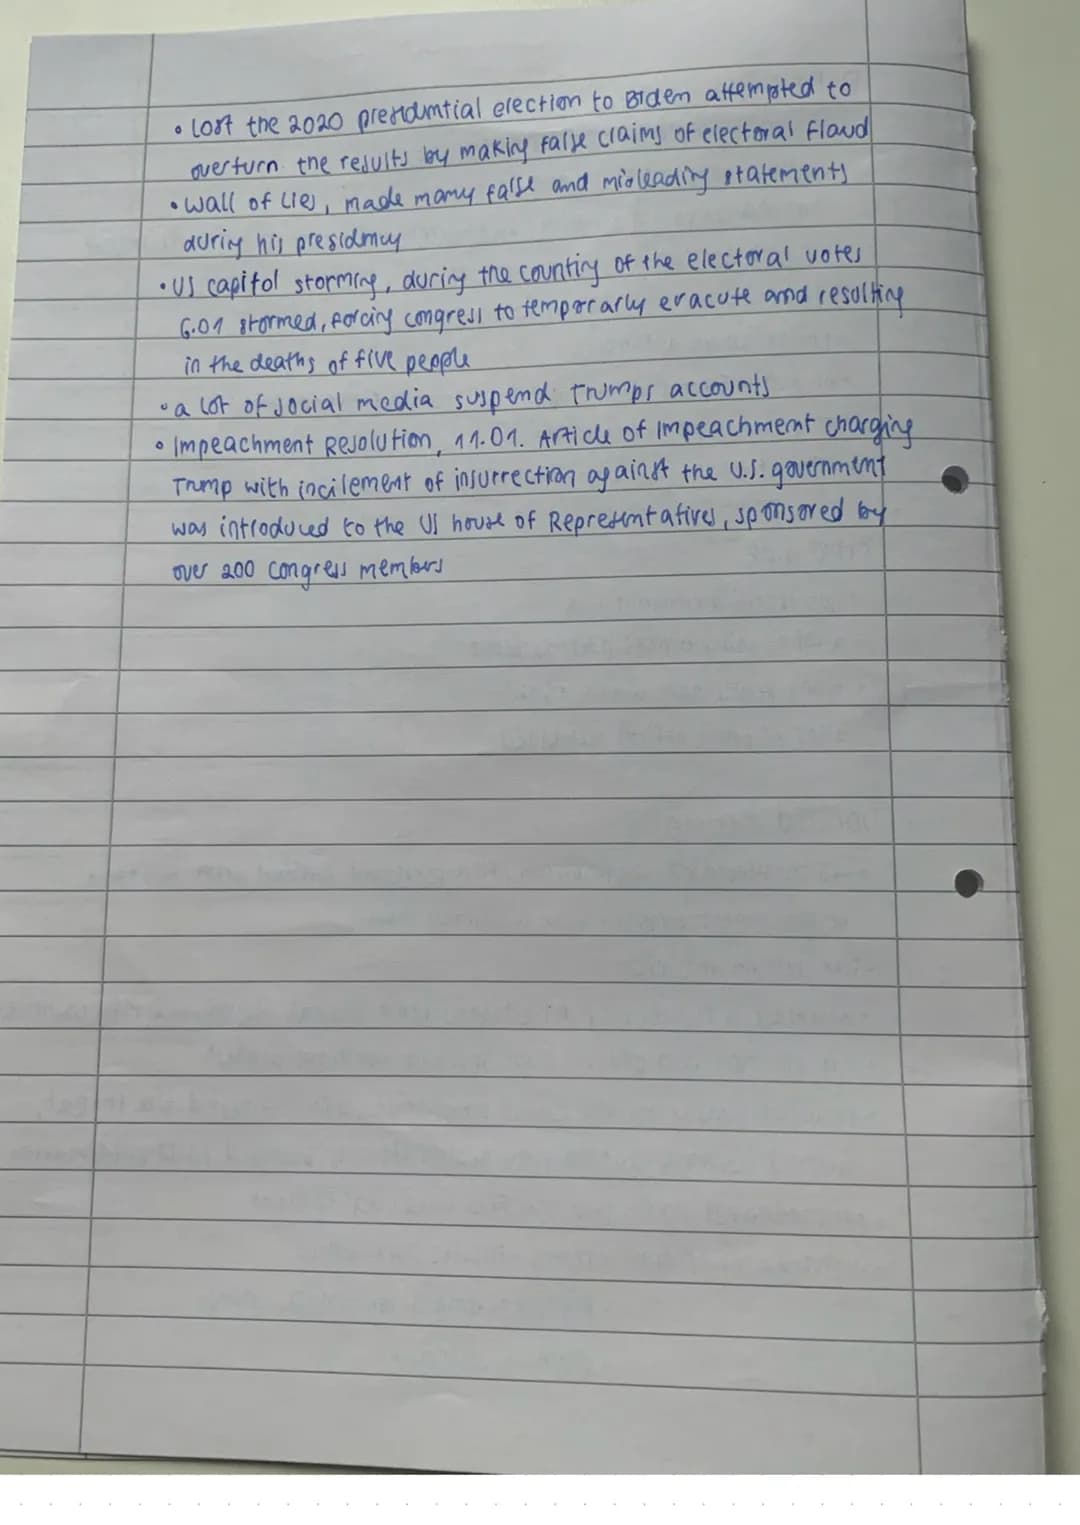 • Lost the 2020 presidential election to Biden attempted to
overturn the results by making false claims of electoral flaud
• Wall of Lies, made many false and misleading statements
during his presidency
• US capitol storming, during the counting of the electoral votes
6.01 stormed, forcing congress to temporarly evacute and resulting
in the deaths of five people
• a lot of social media suspend Trumps accounts
• Impeachment Resolution, 11.01. Article of Impeachment charging
Trump with incilement of insurrection against the U.S. government
was introduced to the US house of Representatives, sponsored by
over 200 congress members